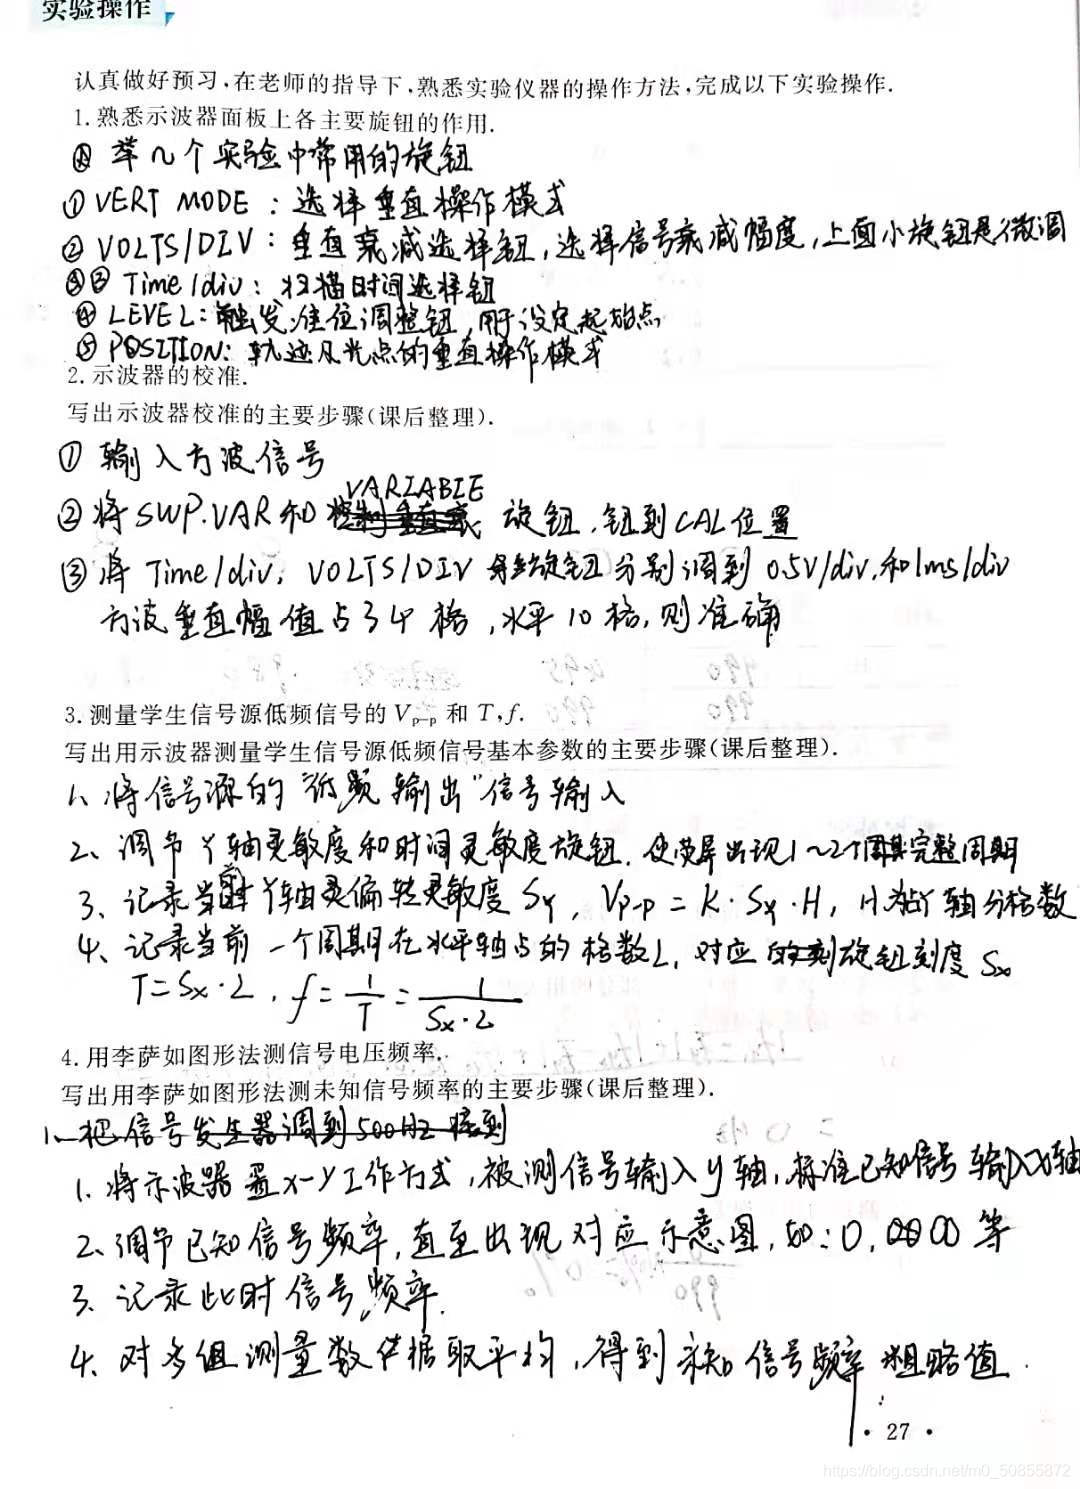 实验操作
认真做好预习,在老师的指导下,熟悉实验仪器的操作方法,完成以下实验操作.
1.熟悉示波器面板上各主要旋钮的作用.
举几个实验中常用的旋钮
① VERT MODE：选择垂直操作模式
② VOLTS/DIV：垂直衰减选择钮,选择信号衰减幅度,上面小旋钮是微调
③ Time/div：扫描时间选择钮
④ LEVEL：触发准位调整钮,用于设定起始点
⑤ POSITION：轨迹及光点的垂直操作模式
2.示波器的校准.
写出示波器校准的主要步骤(课后整理).
① 输入方波信号
② 将SWP.VAR和 VARIABIE 旋钮,钮到CAL位置
③ 将 Time/div, VOLTS/DIV 旋钮分别调到 0.5V/div,和1ms/div
方波垂直幅值占了4格,水平10格,则准确
3.测量学生信号源低频信号的 Vp-p 和 T,f.
写出用示波器测量学生信号源低频信号基本参数的主要步骤(课后整理).
1、将信号源的“低频输出”信号输入
2、调节Y轴灵敏度和时间灵敏度旋钮,使荧屏出现1~2个完整周期
3、记录当前Y轴偏转灵敏度 Sy, Vp-p = K·Sy·H, H为Y轴分格数
4、记录当前一个周期在水平轴占的格数L,对应旋钮刻度 Sx
T=Sx·L, f= 1/T = 1/(Sx·L)
4.用李萨如图形法测信号电压频率.
写出用李萨如图形法测未知信号频率的主要步骤(课后整理).
1、把信号发生器调到500Hz 接到
1、将示波器置x-y工作方式,被测信号输入y轴,标准已知信号输入x轴
2、调节已知信号频率,直至出现对应示意图,如：0, 00 00 等
3、记录此时信号频率.
4、对多组测量数据取平均,得到未知信号频率粗略值.
· 27 ·
https://blog.csdn.net/m0_50855872